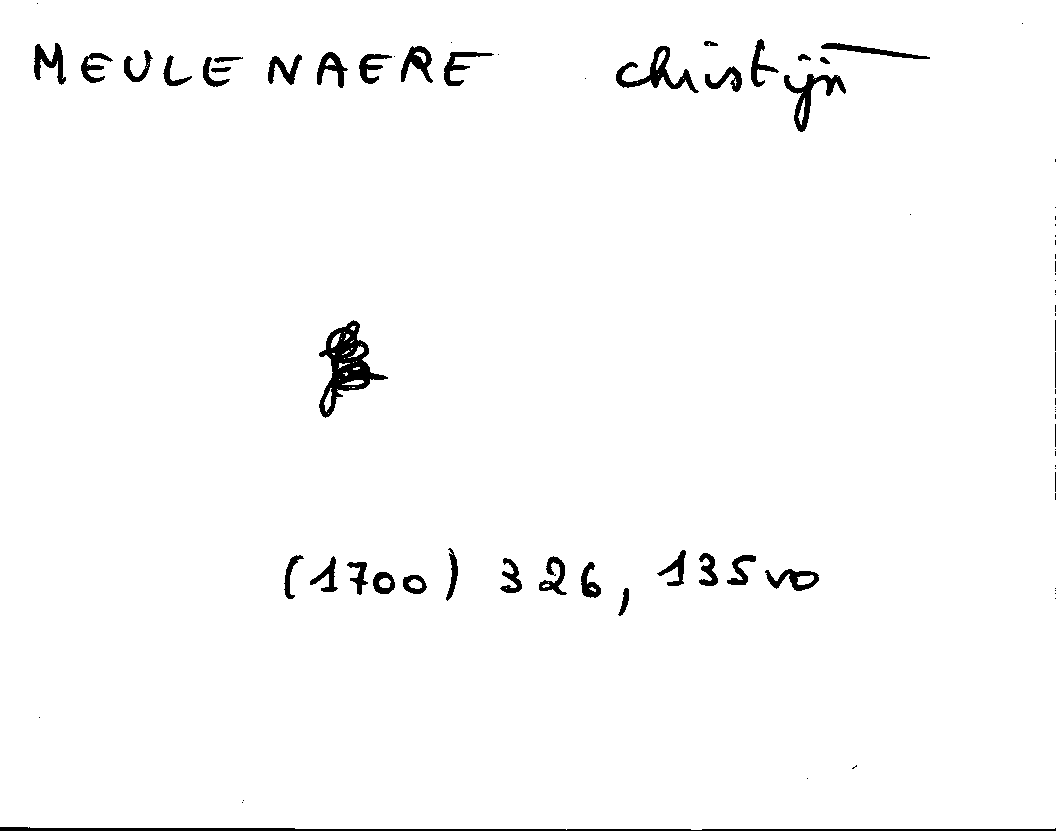 MEULENAERE christijn
(1700) 326, 135vo